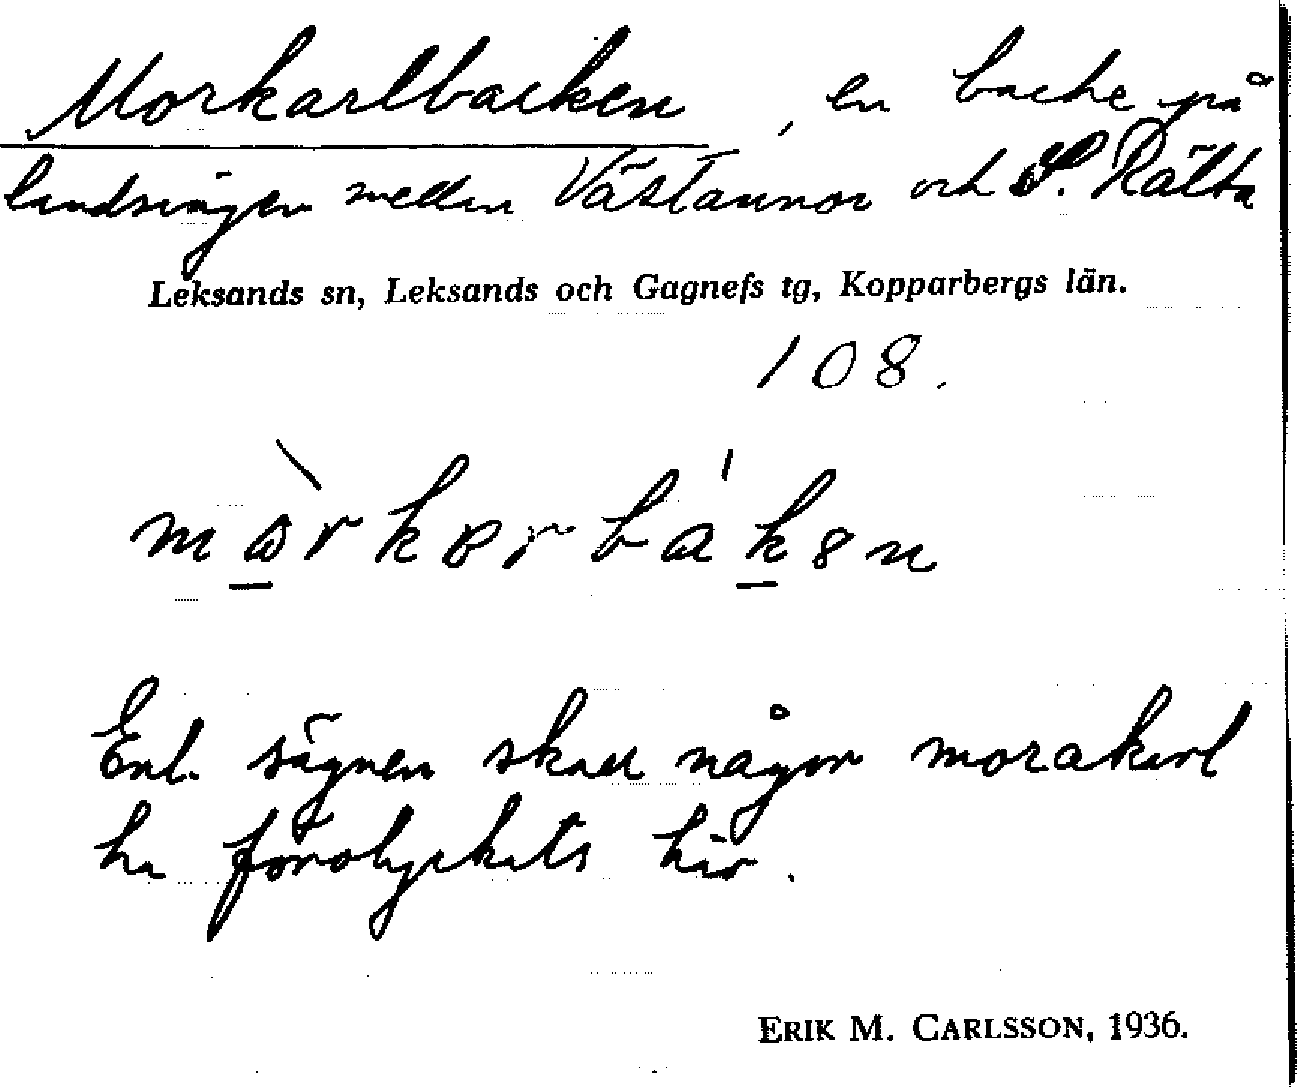 Morkarlbacken, en backe på
landsvägen mellan Västannor och S. Rälta
Leksands sn, Leksands och Gagnefs tg, Kopparbergs län.
108.
Enl. sägnen skall någon morakarl
ha förolyckats här.
ERIK M. CARLSSON, 1936.